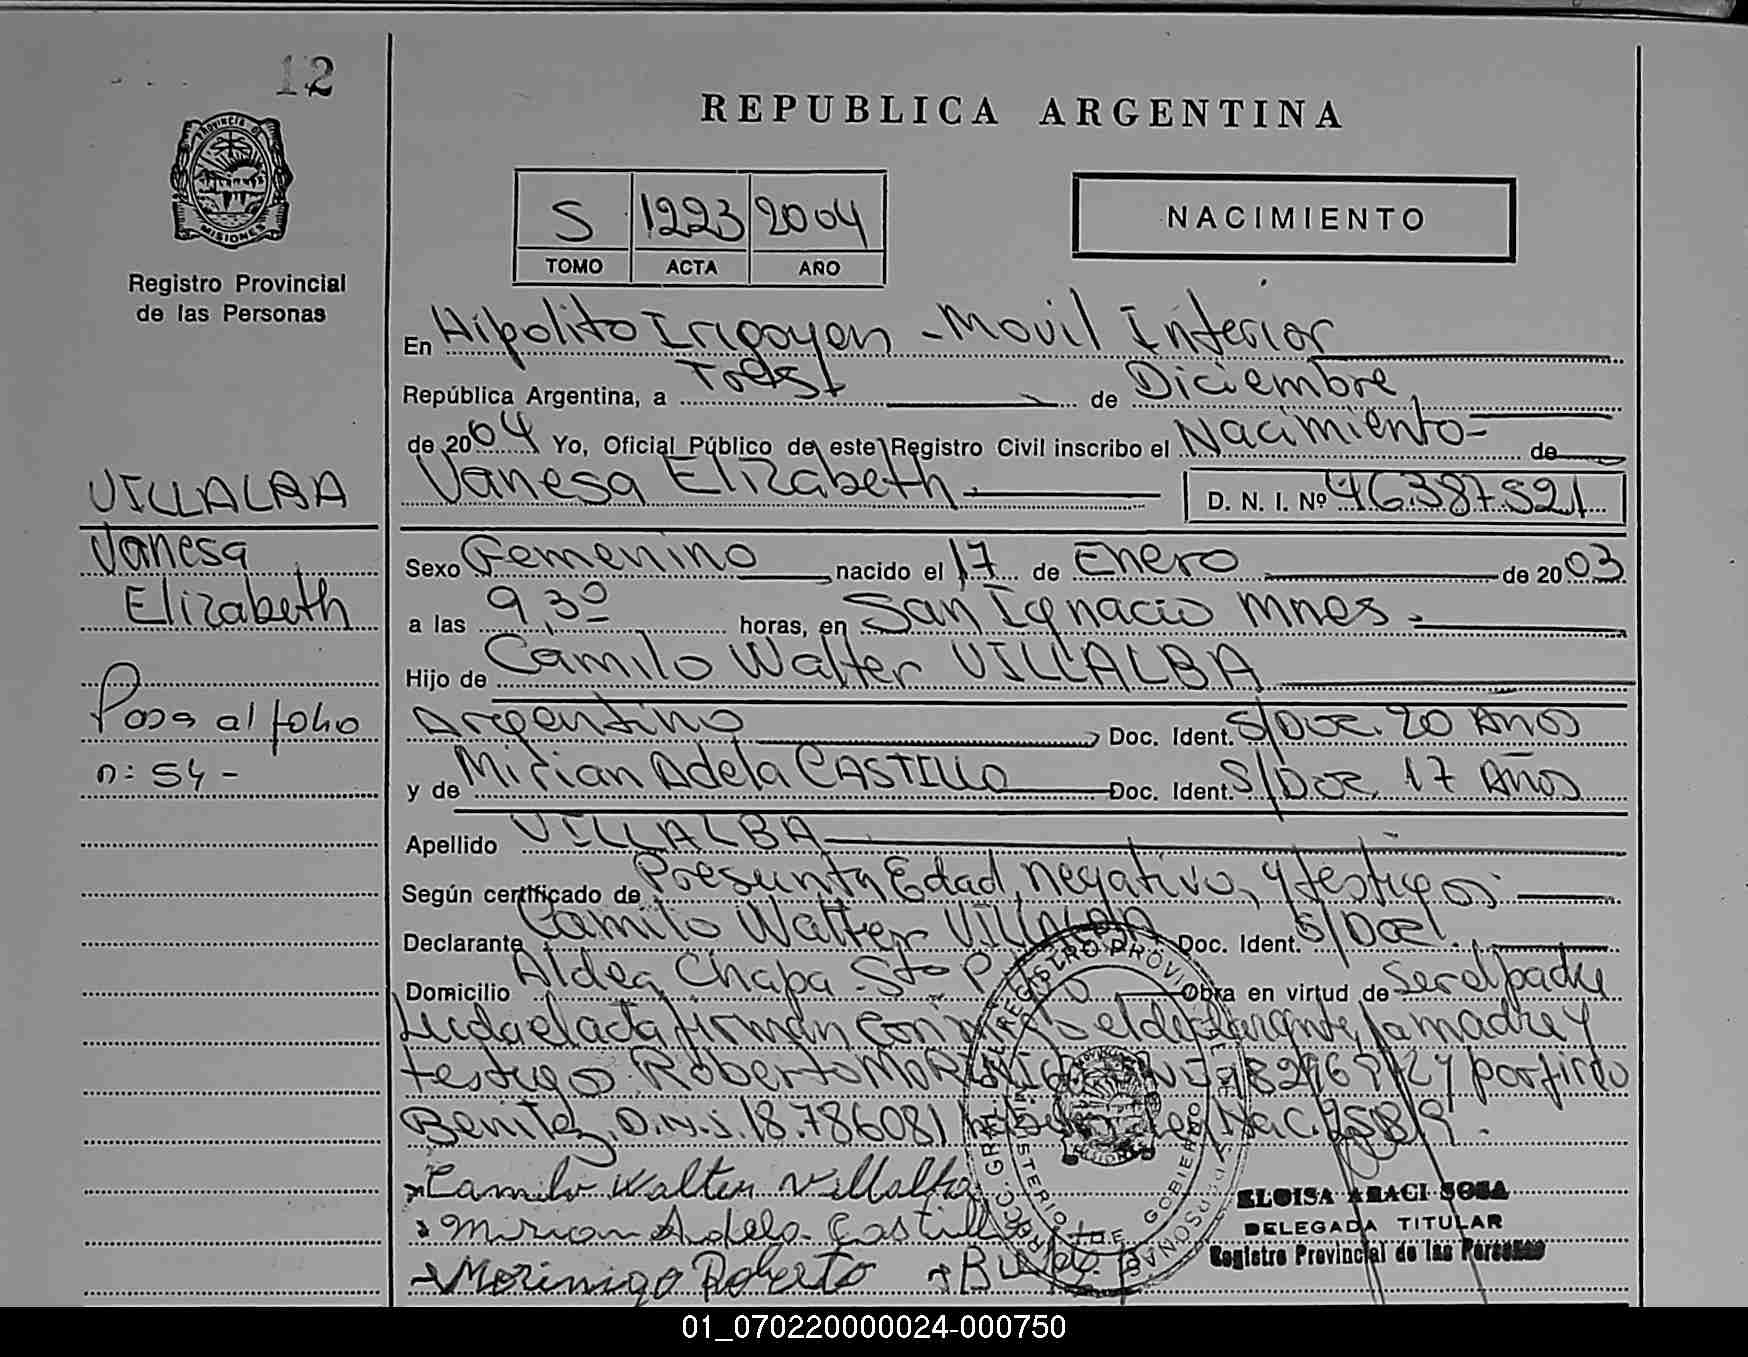 12
PROVINCIA DE
MISIONES
Registro Provincial
de las Personas
VILLALBA
Vanesa
Elizabeth
Pasa al folio
n: 54 -
REPUBLICA ARGENTINA
S 1223 2004
TOMO ACTA AÑO
NACIMIENTO
En Hipolito Irigoyen - Movil Interior
República Argentina, a Tres de Diciembre
de 2004 Yo, Oficial Público de este Registro Civil inscribo el Nacimiento - de
Vanesa Elizabeth. D. N. I. Nº 46.387.521
Sexo Femenino nacido el 17 de Enero de 2003
a las 9,30 horas, en San Ignacio Mnes.
Hijo de Camilo Walter VILLALBA
Argentino Doc. Ident. S/Doc. 20 Años
y de Mirian Adela CASTILLO Doc. Ident. S/Doc. 17 Años
Apellido VILLALBA
Según certificado de Presunta Edad, negativo, y testigos.
Declarante Camilo Walter VILLALBA Doc. Ident. S/Doc.
Domicilio Aldea Chapa Sto P Obra en virtud de Ser el padre
Leida el acta firman el declarante, la madre y
testigos Roberto porfirio
Benitez D.N.I. 18.786081 Ley Nac. 25819.
Camilo Walter Villalba
Mirian Adela Castillo
Morinigo Roberto
ELOISA ARACI SOSA
DELEGADA TITULAR
Registro Provincial de las Personas
01_070220000024-000750